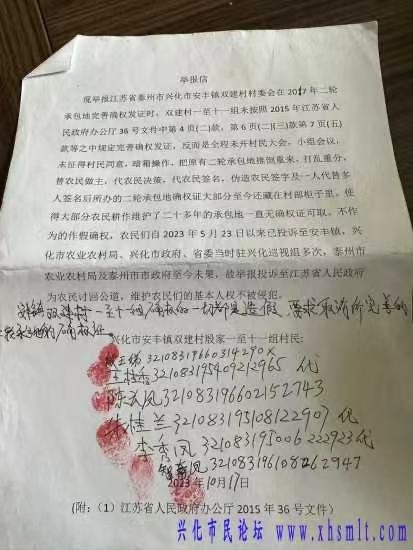 举报信
现举报江苏省泰州市兴化市安丰镇双建村村委会在2017年二轮
承包地完善确权发证时，双建村一至十一组未按照2015年江苏省人
民政府办公厅36号文件中第4页(二)款，第6页(二)(三)款第7页(五)
款等之中规定完善确权发证，反而是全程未开村民大会，小组会议，
未征得村民同意，暗箱操作，把原有二轮承包地推倒重来，打乱重分，
替农民做主，代农民决策，代农民签名，伪造农民签字及一人代替多
人签名后所办的二轮承包地确权证大部分至今还藏在村部柜子里，使
得大部分农民耕作维护了二十多年的承包地一直无确权证可取，不作
为的作假确权，农民们自2023年5月23日以来已投诉至安丰镇，兴
化市农业农村局、兴化市政府、省委当时驻兴化巡视组多次，泰州市
农业农村局及泰州市市政府至今未果，故举报投诉至江苏省人民政府
为农民讨回公道，维护农民们的基本人权不被侵犯。
双建村一至十一组确权的一切都是造假，要求取消所完善的
农承包地的确权证
兴化市安丰镇双建村殷家一至十一组村民：
王锦 32108319660314290X
王桂秀 321083195409212965 代
陈云凤 321083196602152743
朱桂兰 321083195108122907 代
李秀凤 321083195006222923 代
凤 321083196108262947
2023年10月17日
(附：(1)江苏省人民政府办公厅2015年36号文件)
兴化市民论坛 www.xhsmlt.com